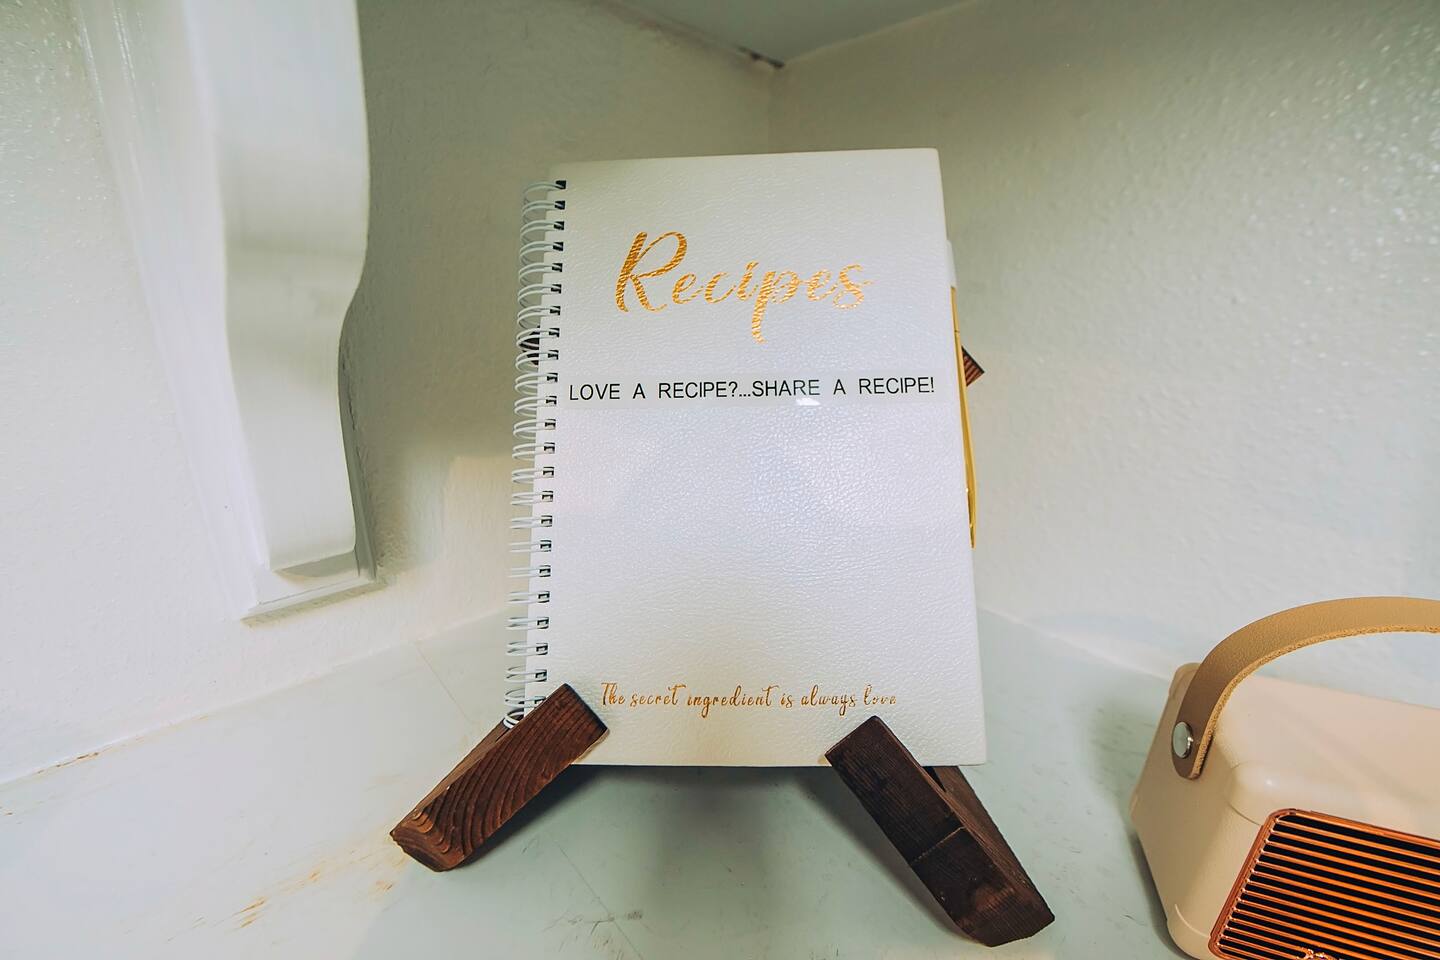 Recipes
LOVE A RECIPE?...SHARE A RECIPE!
The secret ingredient is always love